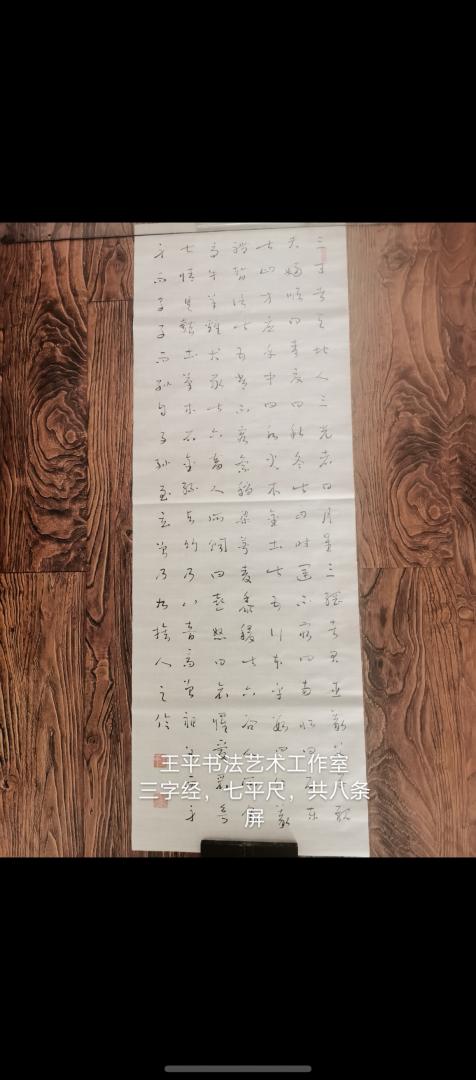 三才者天地人三光者日月星三綱者君臣義父子親
夫婦順曰春夏曰秋冬此四時運不窮曰南北曰西東
此四方應乎中曰水火木金土此五行本乎數曰仁義
禮智信此五常不容紊稻粱菽麥黍稷此六穀人所食
馬牛羊雞犬豕此六畜人所飼曰喜怒曰哀懼愛惡欲
七情具匏土革木石金絲與竹乃八音高曾祖父而身
身而子子而孫自子孫至玄曾乃九族人之倫
王平书法艺术工作室
三字经，七平尺，共八条
屏